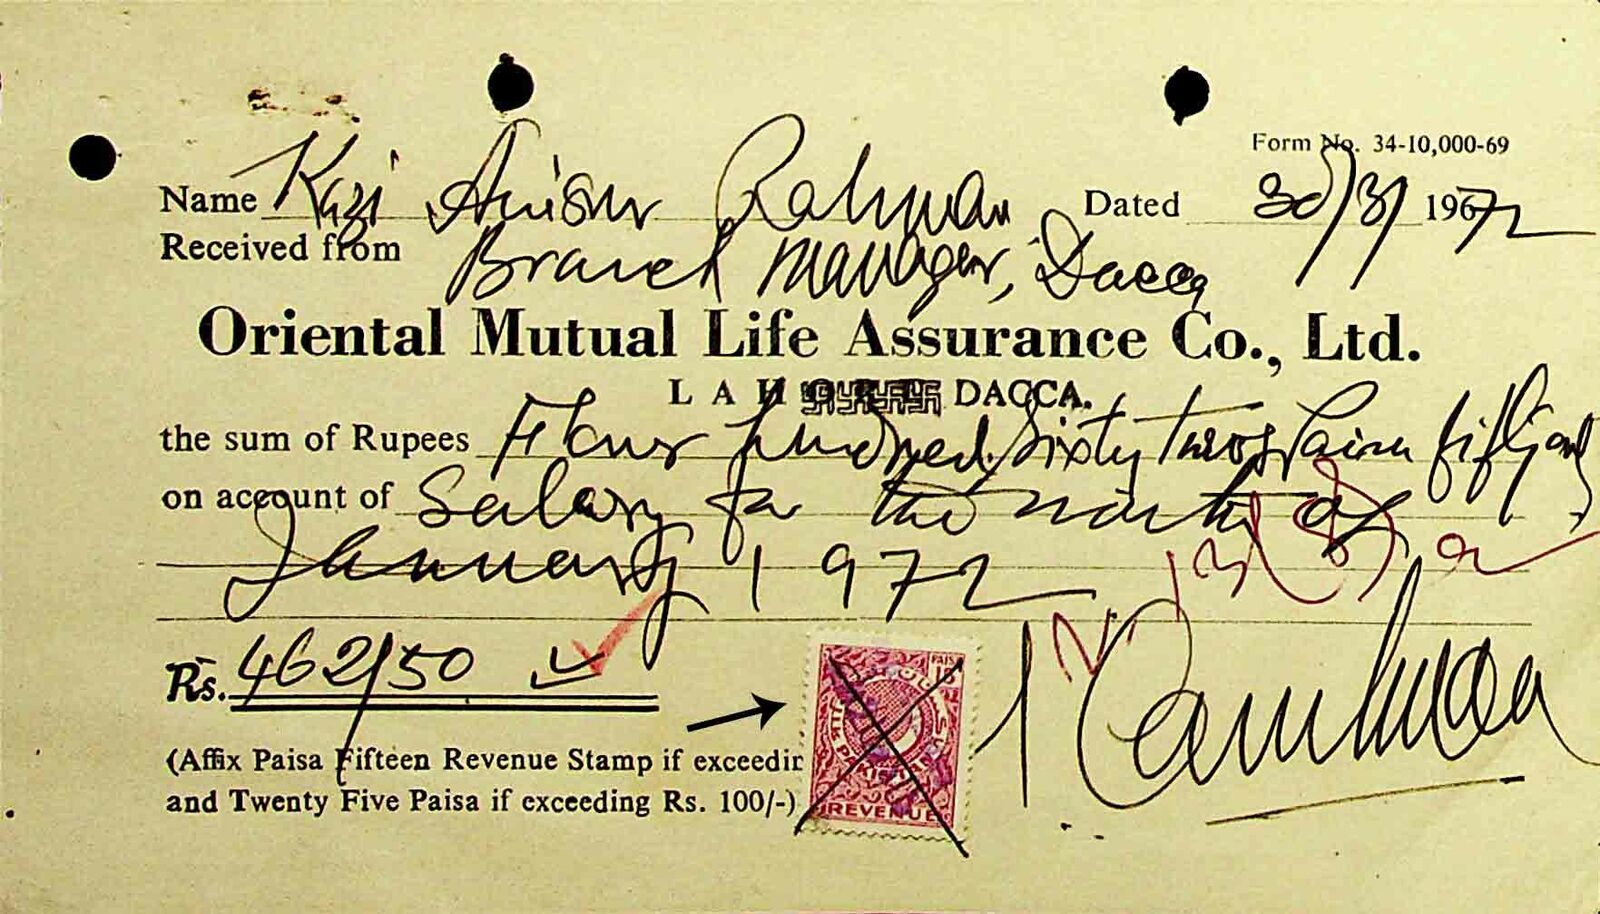 Form No. 34-10,000-69
Name Kazi Anisur Rahman Dated 30/3/ 1972
Received from Branch Manager, Dacca
Oriental Mutual Life Assurance Co., Ltd.
LAHORE DACCA.
the sum of Rupees Four hundred Sixty two & Paisa fifty only
on account of Salary for the month of
January 1972
Rs. 462/50
(Affix Paisa Fifteen Revenue Stamp if exceedin
and Twenty Five Paisa if exceeding Rs. 100/-)
PAISA 15
PAKISTAN
REVENUE